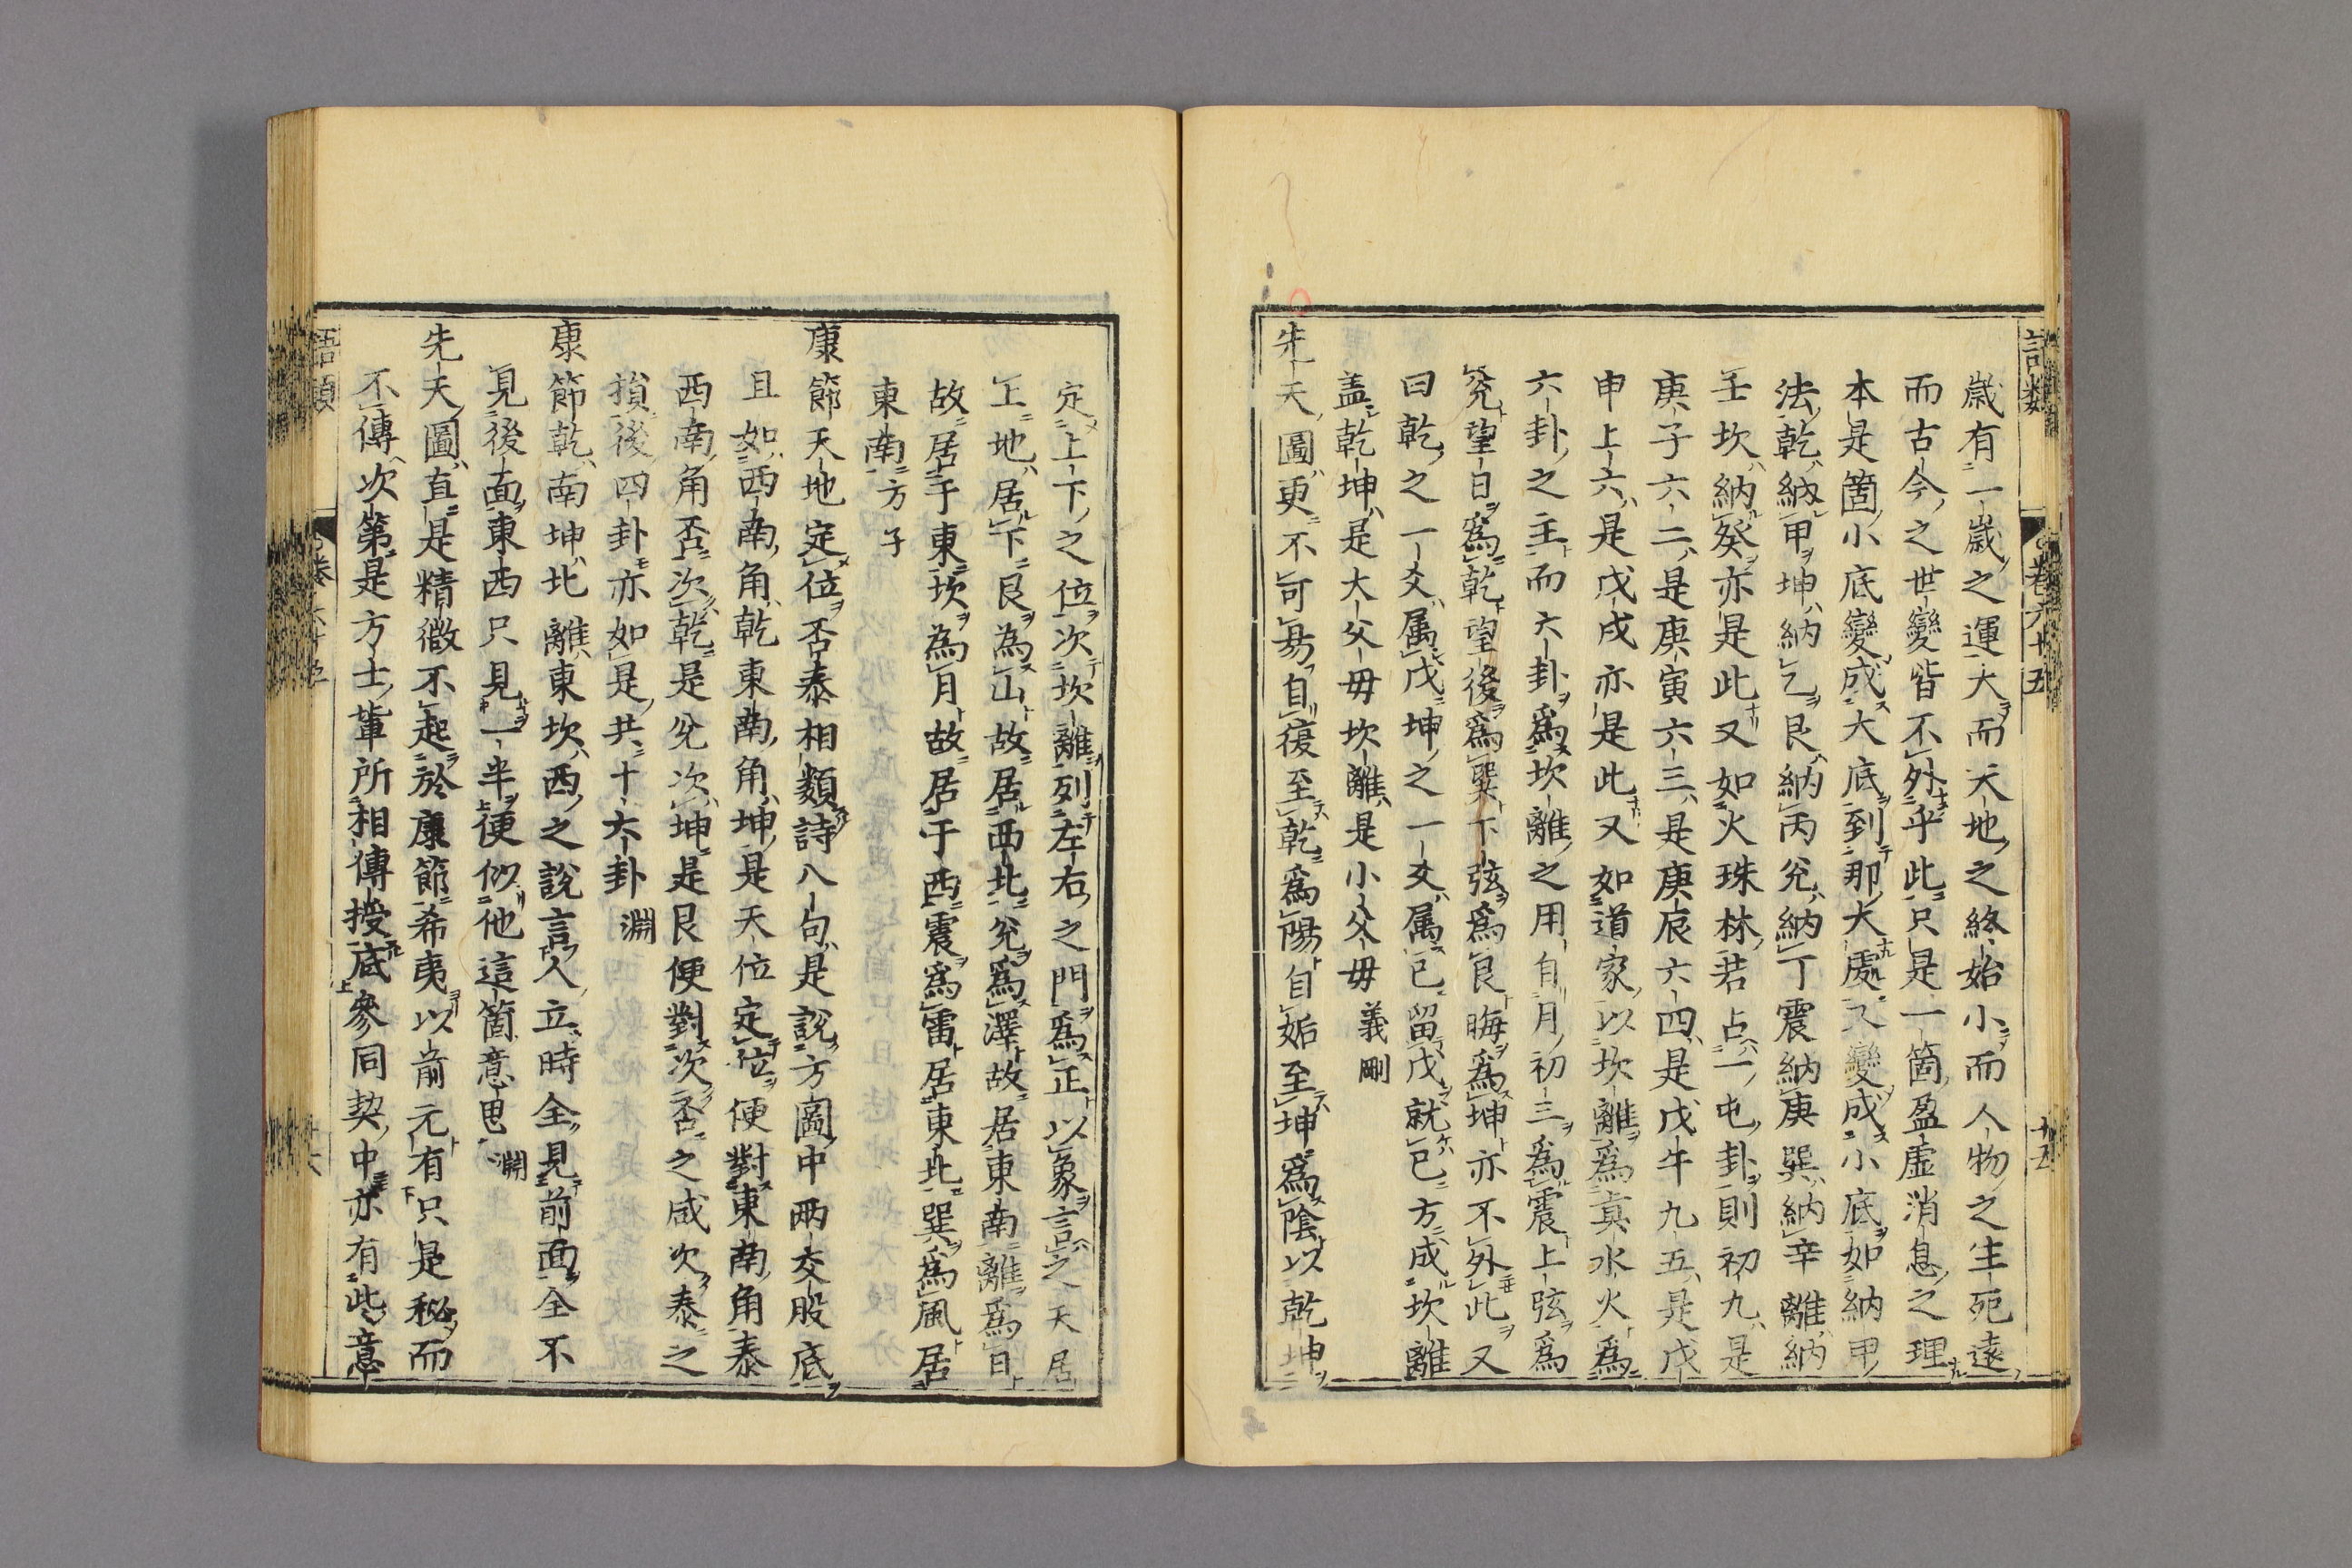 語類
卷六十五
十五
歲有一歲之運大而天地之終始小而人物之生死遠
而古今之世變皆不外乎此只是一箇盈虛消息之理
本是箇小底變成大底到那大處又變成小底如納甲
法乾納甲坤納乙艮納丙兌納丁震納庚巽納辛離納
壬坎納癸亦是此又如火珠林若占一屯卦則初九是
庚子六二是庚寅六三是庚辰六四是戊午九五是戊
申上六是戊戌亦是此又如道家以坎離爲真水火爲
六卦之主而六卦爲坎離之用自月初三爲震上弦爲
兌望日爲乾望後爲巽下弦爲艮晦爲坤亦不外此又
曰乾之一爻属戊坤之一爻属已留戊就已方成坎離
盖乾坤是大父毋坎離是小父毋 義剛
先天圖更不可易自復至乾爲陽自姤至坤爲陰以乾坤
定上下之位次坎離列左右之門爲正以象言之天居
上地居下艮為山故居西北兌爲澤故居東南離爲日
故居于東坎為月故居于西震爲雷居東北巽爲風居
東南 方子
康節天地定位否泰相類詩八句是說方圖中兩交股底
且如西南角乾東南角坤是天位定位便對東南角泰
西南角否次乾是兌次坤是艮便對次否之咸次泰之
損後四卦亦如是共十六卦 淵
康節乾南坤北離東坎西之說言人立時全見前面全不
見後面東西只見一半便似他這箇意思 淵
先天圖直是精微不起於康節希夷以前元有只是秘而
不傳次第是方士輩所相傳授底參同契中亦有此意
語類
卷六十五
十六